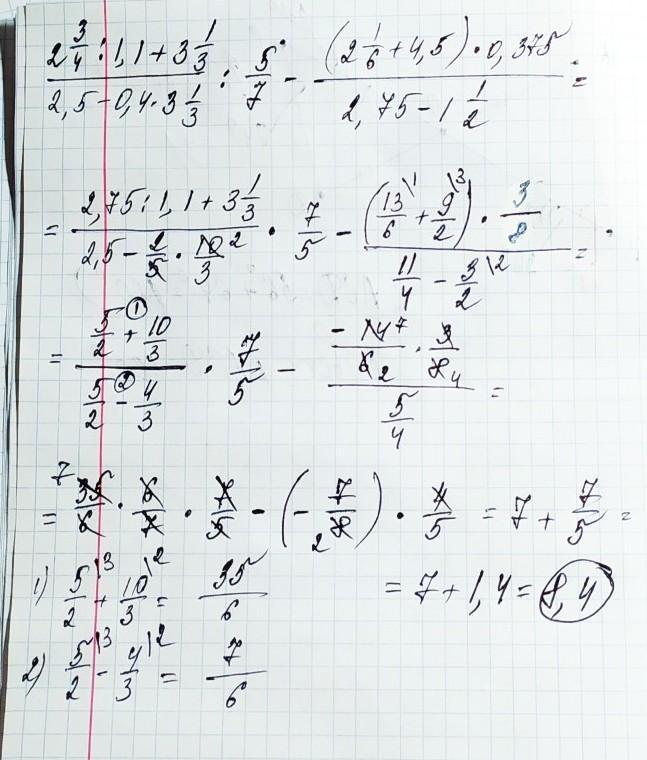 (2 3/4 : 1,1 + 3 1/3)/(2,5 - 0,4 · 3 1/3) : 5/7 - ((2 1/6 + 4,5) · 0,375)/(2,75 - 1 1/2) =
= (2,75 : 1,1 + 3 1/3)/(2,5 - 2/5 · 10/3 2) · 7/5 - ((13/6 \1 + 9/2 \3) · 3/8)/(11/4 - 3/2 \2) =
= (5/2 + ① 10/3)/(5/2 - ② 4/3) · 7/5 - (-14 7/6 2 · 3/8 4)/(5/4) =
= 7 35/6 · 6/7 · 7/5 - (- 7/2 8) · 4/5 = 7 + 7/5 =
1) 5/2 \3 + 10/3 \2 = 35/6
= 7 + 1,4 = 8,4
2) 5/2 \3 - 4/3 \2 = 7/6